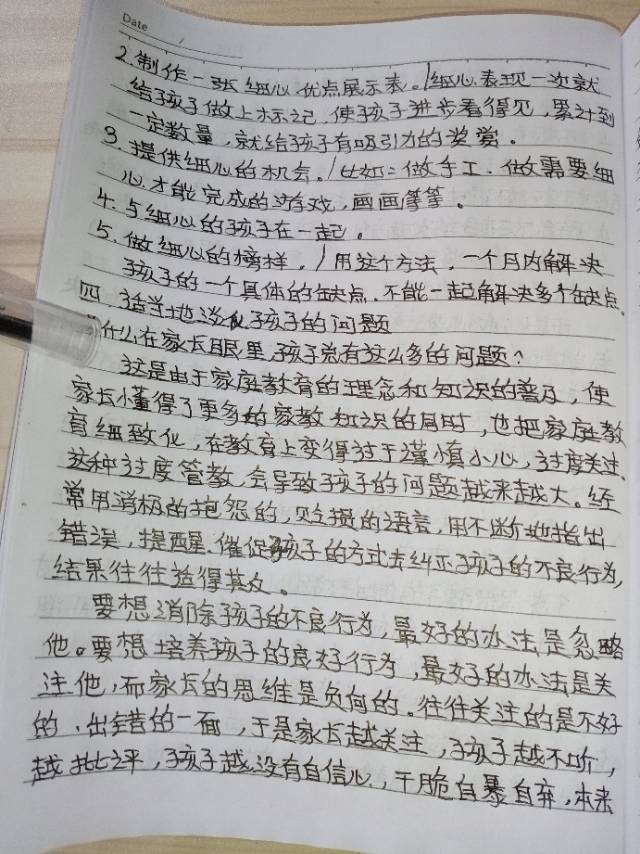 Date
2.制作一张细心优点展示表。/细心表现一次就
给孩子做上标记,使孩子进步看得见,累计到
一定数量,就给孩子有吸引力的奖赏。
3.提供细心的机会。/比如:做手工.做需要细
心才能完成的游戏,画画等等。
4.与细心的孩子在一起。
5.做细心的榜样。/用这个方法.一个月内解决
孩子的一个具体的缺点.不能一起解决多个缺点.
四 适当地淡化孩子的问题
什么在家长眼里,孩子总有这么多的问题?
这是由于家庭教育的理念和知识的普及,使
家长懂得了更多的家教知识的同时,也把家庭教
育细致化,在教育上变得过于谨慎小心,过度关注.
这种过度管教,会导致孩子的问题越来越大。经
常用消极的抱怨的,贬损的语言,用不断地指出
错误,提醒.催促孩子的方式去纠正孩子的不良行为,
结果往往适得其反。
要想消除孩子的不良行为,最好的办法是忽略
他。要想培养孩子的良好行为,最好的办法是关
注他,而家长的思维是负向的。往往关注的是不好
的.出错的一面,于是家长越关注,孩子越不听,
越批评,孩子越没有自信心,干脆自暴自弃,本来